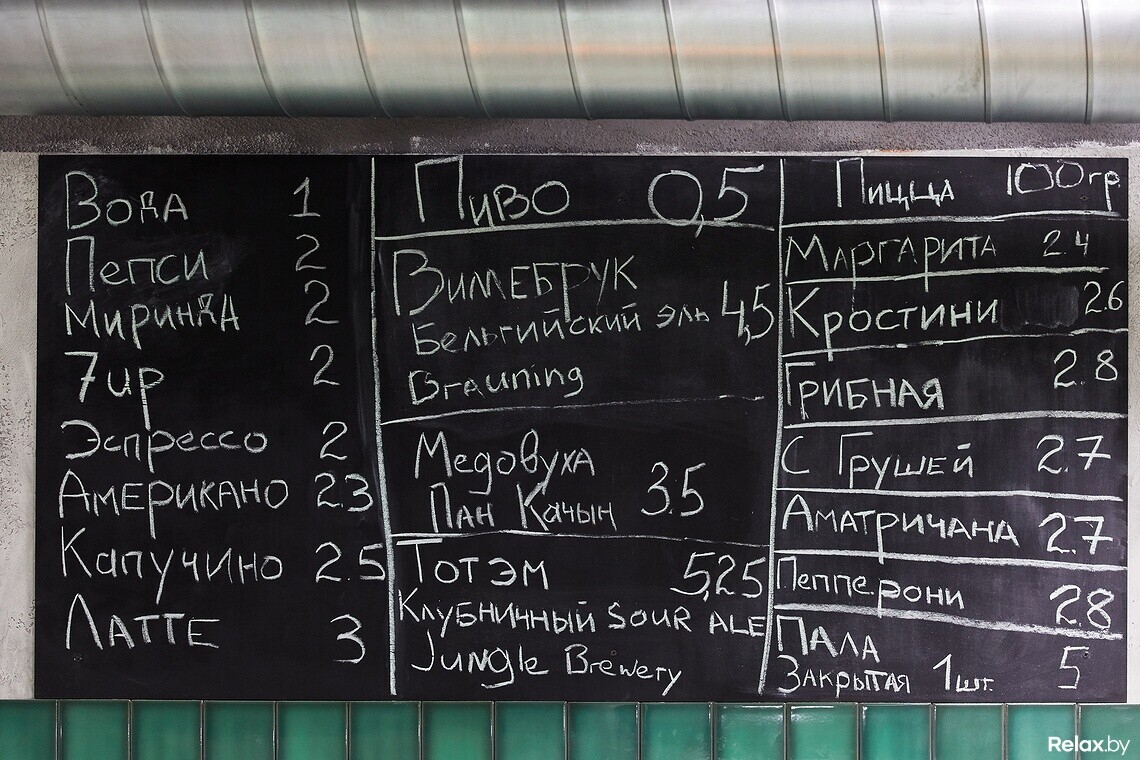 Вода 1
Пепси 2
Миринда 2
7up 2
Эспрессо 2
Американо 2.3
Капучино 2.5
Латте 3
Пиво 0,5
Вилмебрук
Бельгийский эль 4,5
Brauning
Медовуха
Пан Качын 3.5
Тотэм 5,25
Клубничный SOUR ALE
Jungle Brewery
Пицца 100гр.
Маргарита 2.4
Кростини 2.6
Грибная 2.8
С Грушей 2.7
Аматричана 2.7
Пепперони 2.8
Пала
Закрытая 1шт. 5
Relax.by